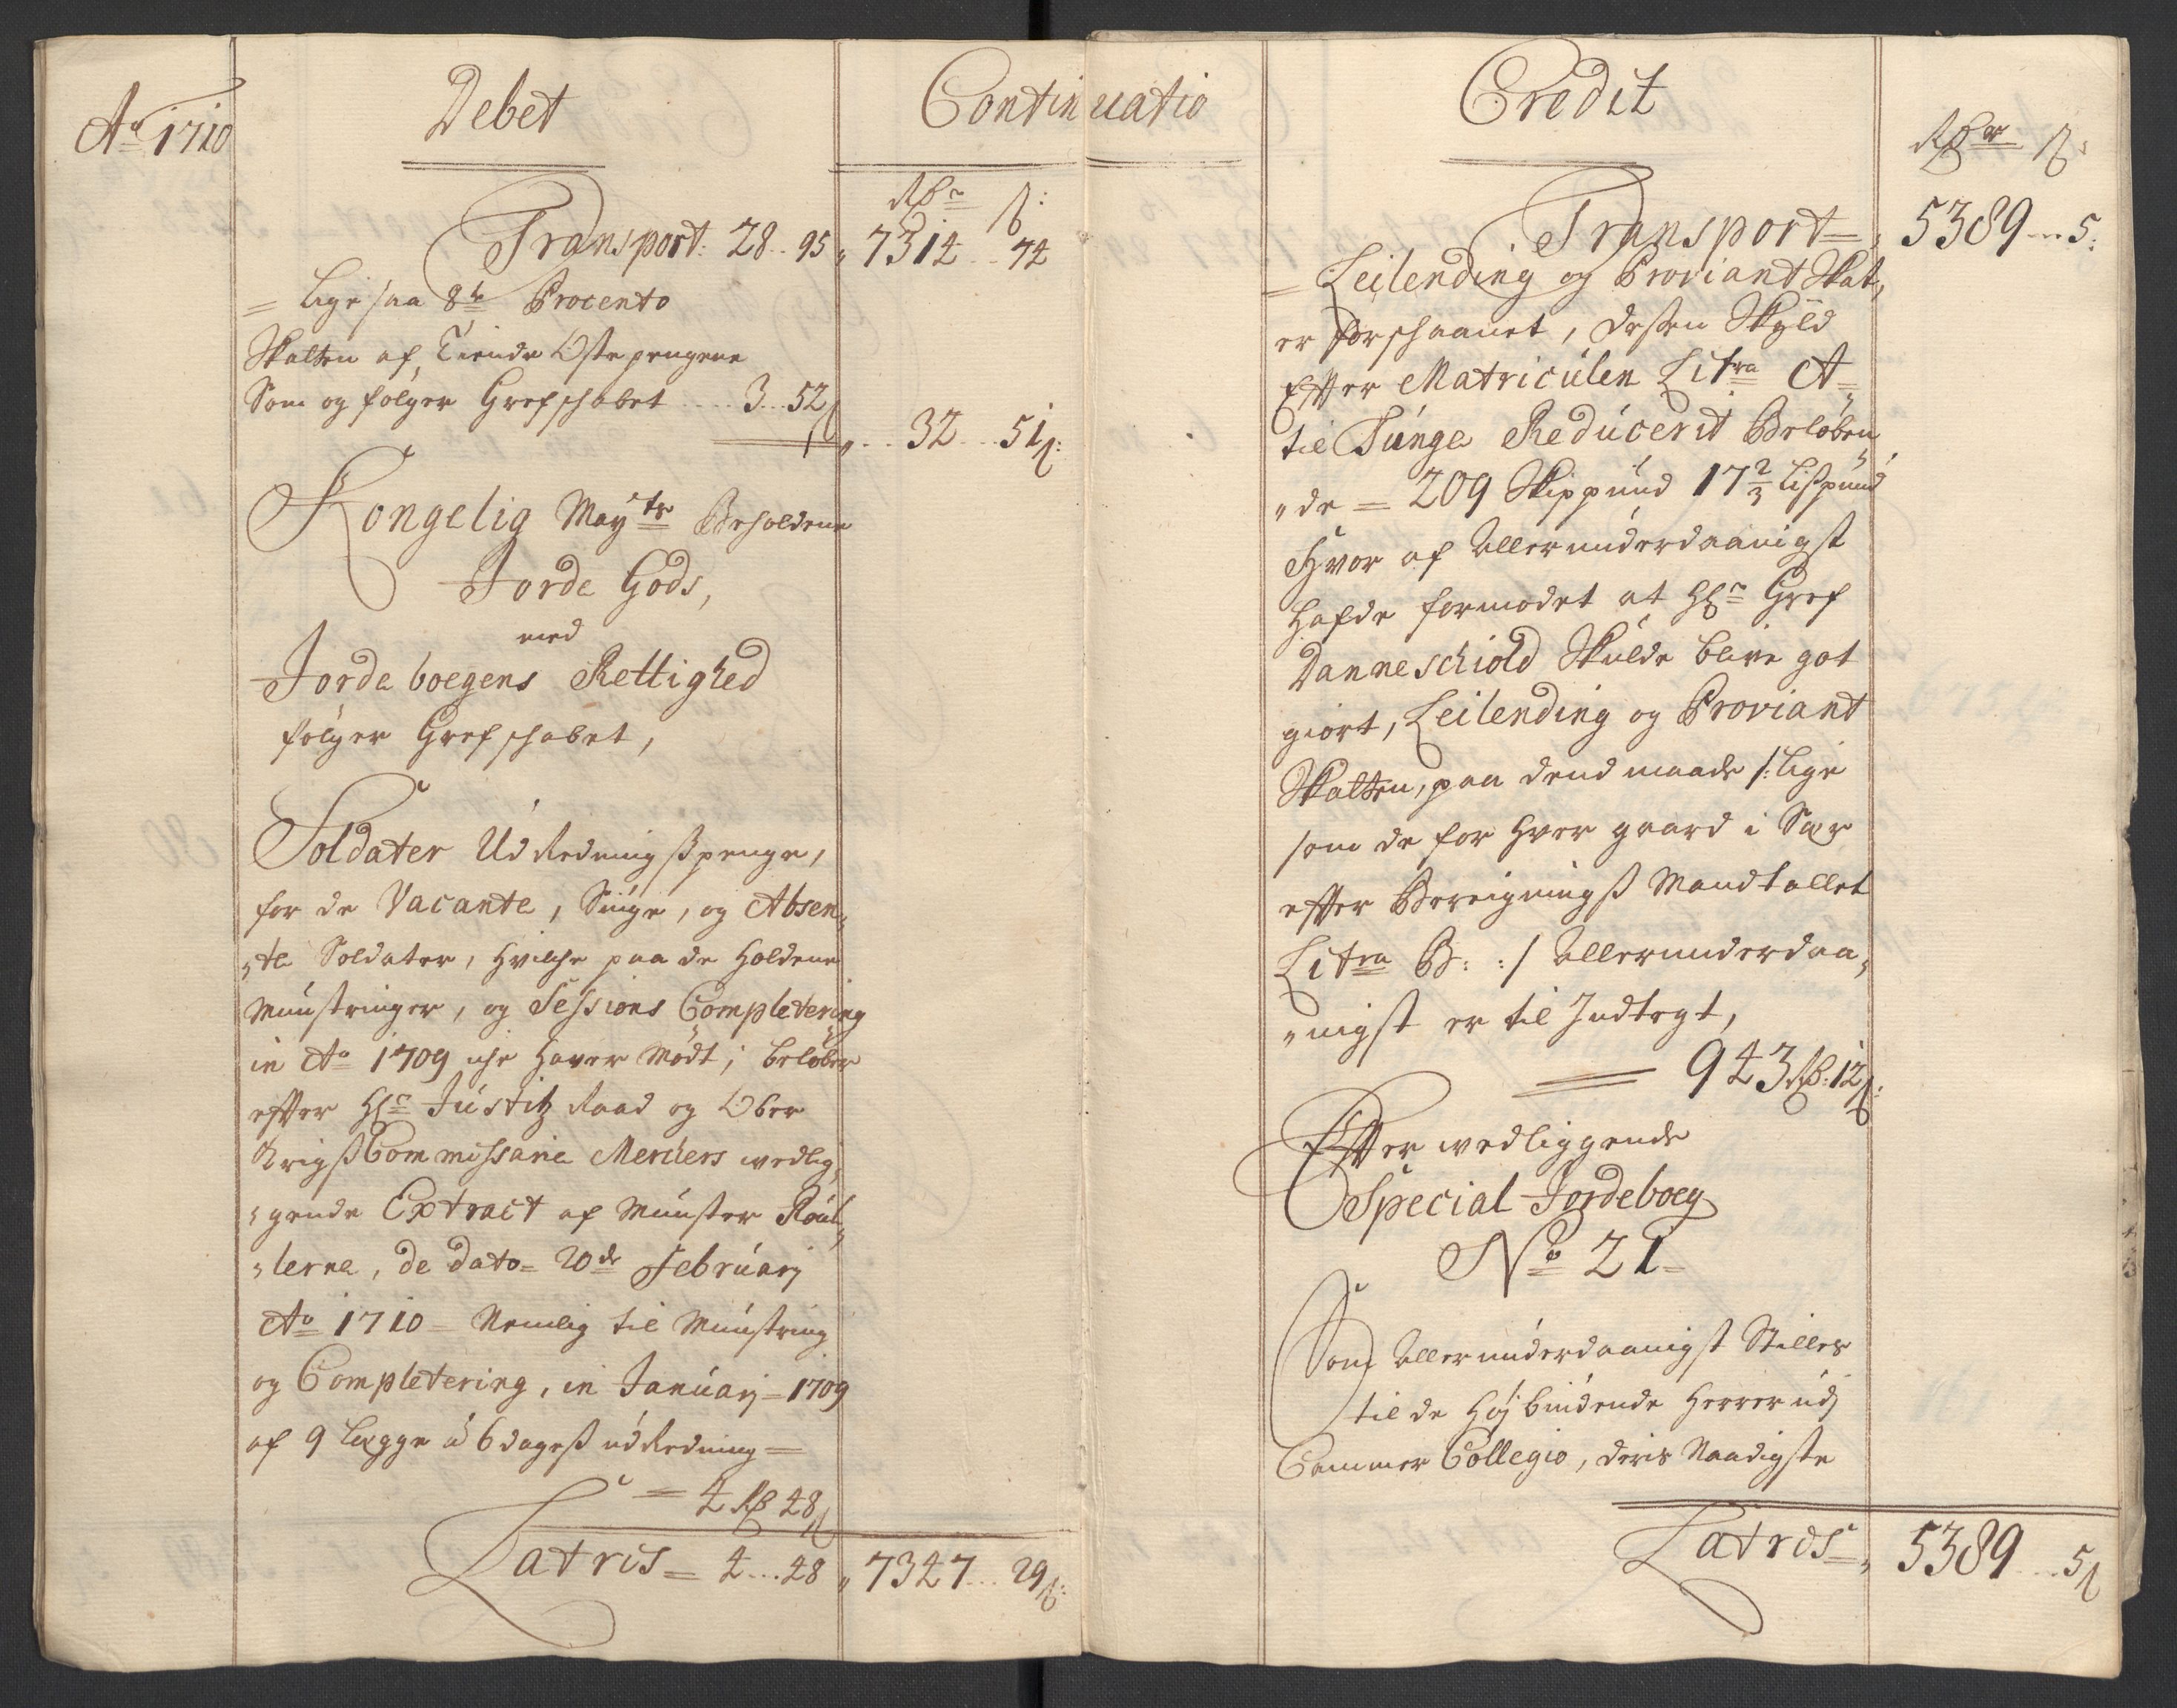 Ao 1710
Debet
Continuatio
Rdr ß:
Transport: 28..95 „ 7314...74
= lige saa 8te Procento
Skatten af, Tiende Ostepengene
Som og følger Grefschabet .... 3...52ß
„... 32...51ß:
Kongelig Maytz Beholdene
Jorde Gods,
med
Jordeboegens Rettighed
følger Grefschabet,
Soldater Udredningsspenge,
for de Vacante, Siuge, og Absen„
„te Soldater, hvilche paa de holdene
Munstringer, og Sessions Completering
in Ao 1709 iche haver Mødt, beløber
efter Hr Justitz Raad og Ober
KrigsCommissarie Merchers wedlig„
„gende Extract af Munster Roul„
„lerne, de dato= 20de Februarij
Ao 1710= Nemlig til Munstring
og Completering, in Januarj=1709
af 9 Legge á 6 dages udredning=
= 4 Rd 48ß
Latris= 4...48 „ 7347...29ß:
Credit
Rdr ß:
Transport= „ 5389...5:
= Leilending og ProviantSkat„
er forschaanet, dessen Skyld
Efter Matriculen Litra A=
til Tunge Reducerit Beløben„
„de = 209 Skippund 17 2/3 Lispund
Hvor af allerunderdaanigst
hafde formodet at Hr Gref
Danneschiold Skulde blive got
giort, Leilending og Proviant
Skatten, paa dend maade /: lige
som de for hver gaard i Sær
efter Bereignings Mandtallet
Litra B: :/ allerunderdaa„
„nigst er til Indtegt,
= 943 Rd: 12ß:
Efter wedliggende
Special Jordeboeg
No 21=
Som allerunderdaanigst Stilles
til de Høybiudende Herrer udj
Cammer Collegio, deris Naadigste
Latris= „ 5389...5ß